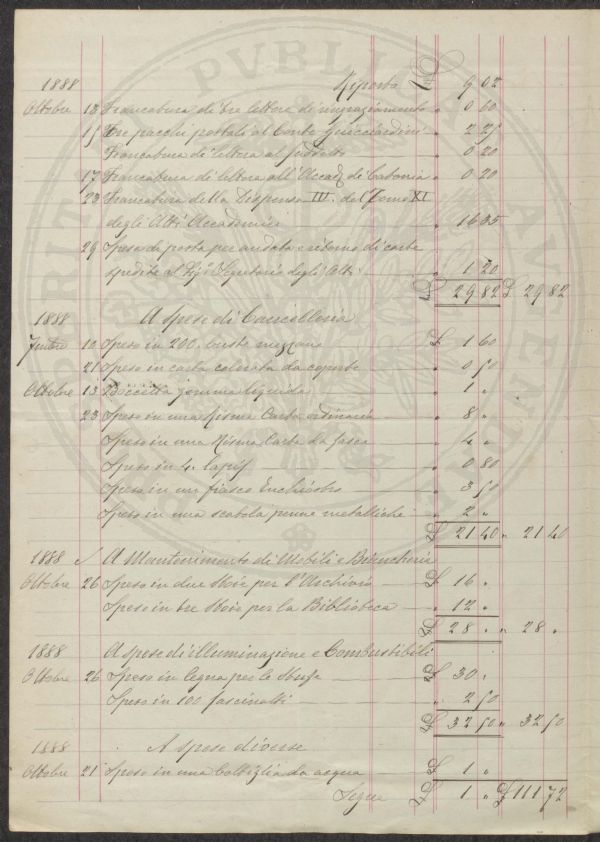 1888 Riporto £ 9 02
Ottobre 13 Francatura di tre lettere di ringraziamento " 0 60
15 Tre pacchi postali al Conte Guicciardini " 2 25
Francatura di lettera al suddetto " 0 20
17 Francatura di lettera all'Accad. di Catania " 0 20
23 Francatura della Dispensa III. del Tomo XI
degli Atti Accademici " 16 35
29 Spesa da posta per andata e ritorno di carte
spedite al Sig. Segretario degli Atti " 1 20
£ 29 82 £ 29 82
1888 A spese di Cancelleria
10 Speso in 200 buste mezzane £ 1 60
21 Speso in carta colorata da coperte " 0 50
Ottobre 13 Boccetta gomma liquida " 1 "
23 Speso in una Risma Carta ordinaria " 8 "
Speso in una Risma Carta da " 4 "
Speso in 4. lapis " 0 80
Speso in un fiasco Inchiostro " 3 50
Speso in una scatola penne metalliche " 2 "
£ 21 40 " 21 40
1888 A Mantenimento di Mobili e Biancheria
Ottobre 26 Speso in due Stoie per l'Archivio £ 16 "
Speso in tre Stoie per la Biblioteca " 12 "
£ 28 " " 28 "
1888 A spese di illuminazione e Combustibili
Ottobre 26 Speso in legna per le Stufe £ 30 "
Speso in 100 fascinotti " 2 50
£ 32 50 " 32 50
1888 A spese diverse
Ottobre 21 Speso in una Bottiglia da acqua £ 1 "
Segue £ 1 " £ 111 72